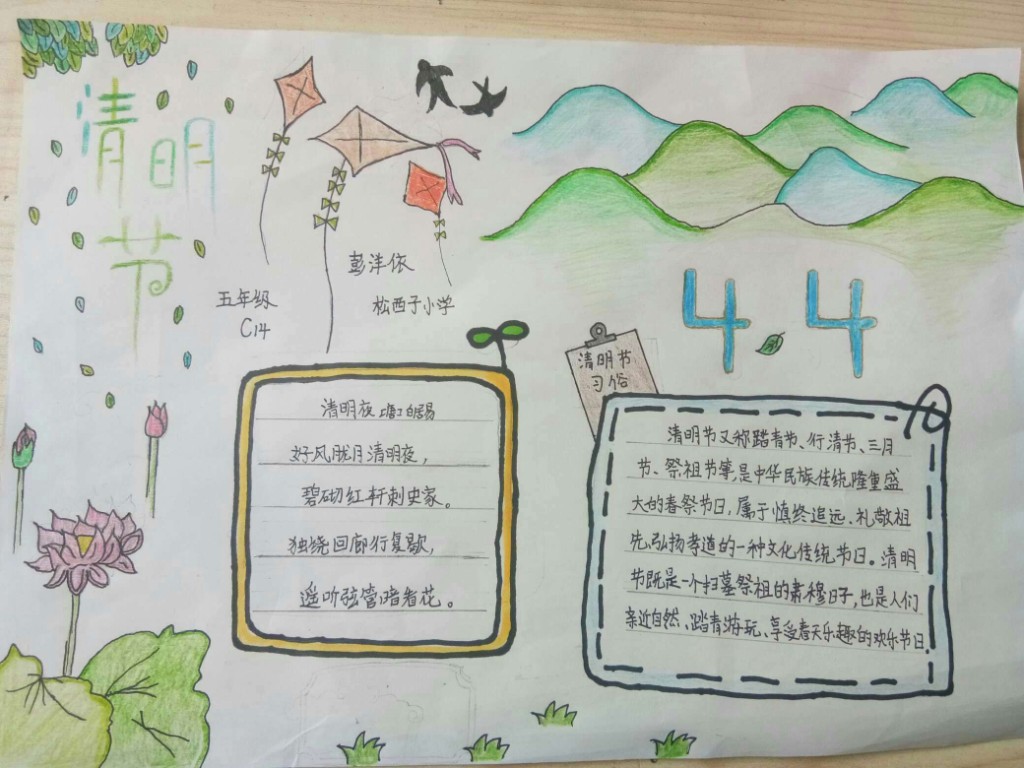 清明节
彭洋依
五年级
松西子小学
C14
4.4
清明节
习俗
清明夜 白居易
好风胧月清明夜，
碧砌红轩刺史家。
独绕回廊行复歇，
遥听弦管暗看花。
清明节又称踏青节、行清节、三月
节、祭祖节等,是中华民族传统隆重盛
大的春祭节日,属于慎终追远、礼敬祖
先、弘扬孝道的一种文化传统节日。清明
节既是一个扫墓祭祖的肃穆日子,也是人们
亲近自然、踏青游玩、享受春天乐趣的欢乐节日.